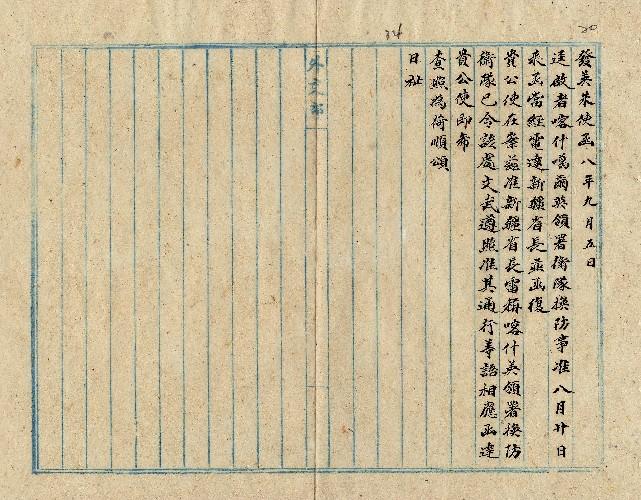 發英朱使函八年九月五日
逕啟者喀什噶爾英領署衛隊換防事准八月廿日
來函當經電達新疆省長並函復
貴公使在案茲准新疆省長電稱喀什英領署換防
衛隊已令該處文武遵照准其通行等語相應函達
貴公使即希
查照為荷順頌
日祉
外交部
34
20